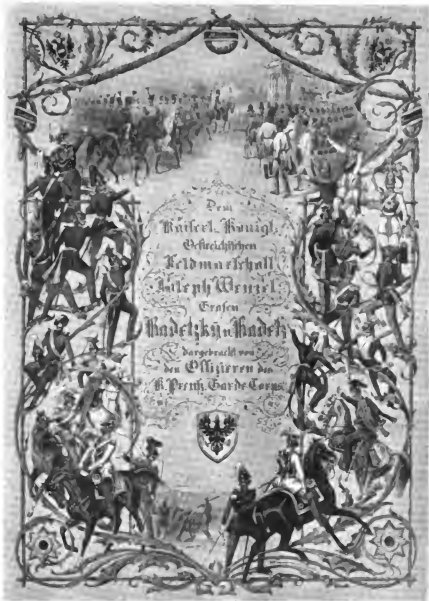 Dem
Kaiserl. Königl.
Oestreichischen
Feldmarschall
Joseph Wenzel
Grafen
Radetzky v. Radetz
dargebracht von
den Offizieren des
K. Preuß. Garde Corps